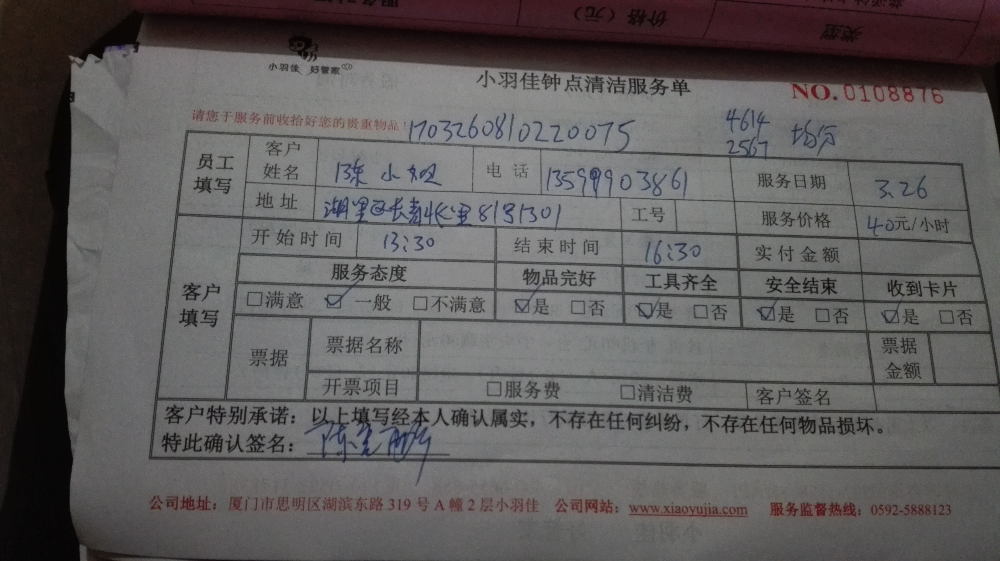 价格（元）
类型
小羽佳 好管家
小羽佳钟点清洁服务单
NO.0108876
请您于服务前收拾好您的贵重物品！
1703260810220075
4614
2567
均分
员工填写
客户姓名 陈小姐 电话 13599903861 服务日期 3.26
地址 湖里区长青 8131301 工号 服务价格 40元/小时
客户填写
开始时间 13:30 结束时间 16:30 实付金额
服务态度 物品完好 工具齐全 安全结束 收到卡片
□满意 ☑一般 □不满意 ☑是 □否 ☑是 □否 ☑是 □否 ☑是 □否
票据 票据名称 票据金额
开票项目 □服务费 □清洁费 客户签名
客户特别承诺：以上填写经本人确认属实，不存在任何纠纷，不存在任何物品损坏。
特此确认签名：陈
公司地址：厦门市思明区湖滨东路319号A幢2层小羽佳 公司网站：www.xiaoyujia.com 服务监督热线：0592-5888123